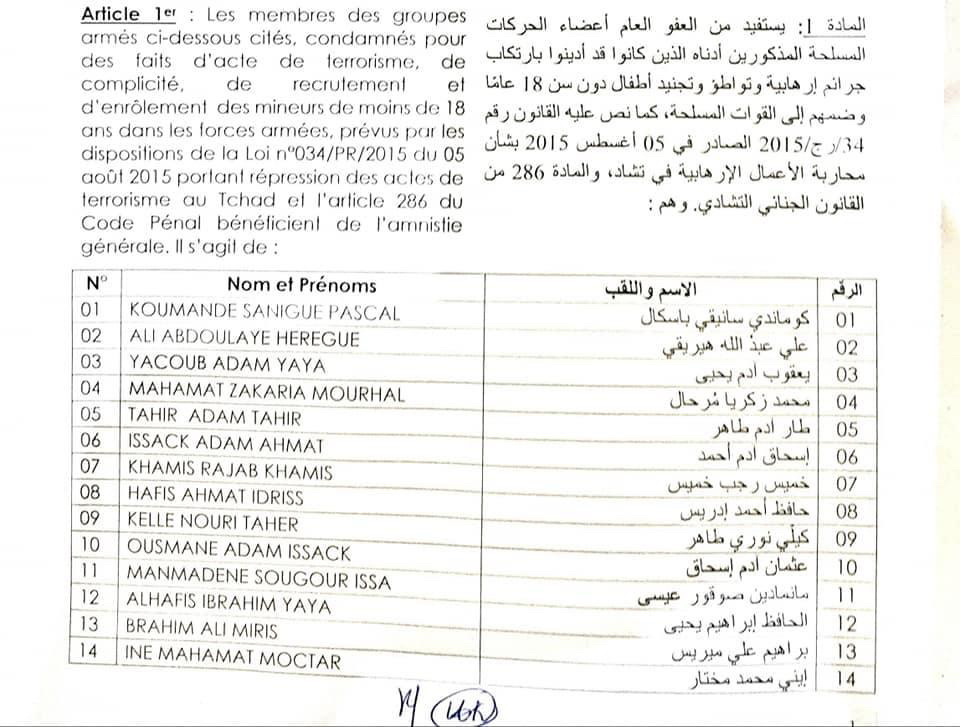 Article 1er : Les membres des groupes
armés ci-dessous cités, condamnés pour
des faits d'acte de terrorisme, de
complicité, de recrutement et
d'enrôlement des mineurs de moins de 18
ans dans les forces armées, prévus par les
dispositions de la Loi n°034/PR/2015 du 05
août 2015 portant répression des actes de
terrorisme au Tchad et l'article 286 du
Code Pénal bénéficient de l'amnistie
générale. Il s'agit de :
المادة 1: يستفيد من العفو العام أعضاء الحركات
المسلحة المذكورين أدناه الذين كانوا قد أدينوا بارتكاب
جرائم إرهابية وتواطؤ وتجنيد أطفال دون سن 18 عامًا
وضمهم إلى القوات المسلحة، كما نص عليه القانون رقم
34/ر ج/2015 الصادر في 05 أغسطس 2015 بشأن
محاربة الأعمال الإرهابية في تشاد، والمادة 286 من
القانون الجنائي التشادي. وهم :
N° Nom et Prénoms الاسم واللقب الرقم
01 KOUMANDE SANIGUE PASCAL كوماندي سانيقي باسكال 01
02 ALI ABDOULAYE HEREGUE علي عبد الله هيريقي 02
03 YACOUB ADAM YAYA يعقوب آدم يحيى 03
04 MAHAMAT ZAKARIA MOURHAL محمد زكريا مُرحال 04
05 TAHIR ADAM TAHIR طار آدم طاهر 05
06 ISSACK ADAM AHMAT إسحاق آدم أحمد 06
07 KHAMIS RAJAB KHAMIS خميس رجب خميس 07
08 HAFIS AHMAT IDRISS حافظ أحمد إدريس 08
09 KELLE NOURI TAHER كيلّي نوري طاهر 09
10 OUSMANE ADAM ISSACK عثمان آدم إسحاق 10
11 MANMADENE SOUGOUR ISSA مانمادين صوقور عيسى 11
12 ALHAFIS IBRAHIM YAYA الحافظ إبراهيم يحيى 12
13 BRAHIM ALI MIRIS براهيم علي ميريس 13
14 INE MAHAMAT MOCTAR إيني محمد مختار 14